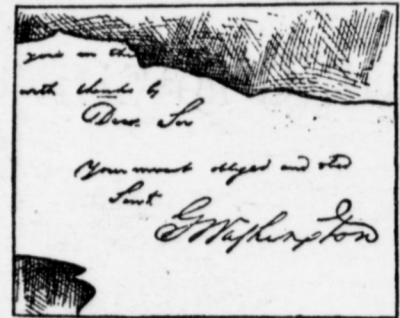 your on the
with thanks by
Dear Sir
Your most obliged and obed
Servt
GWashington